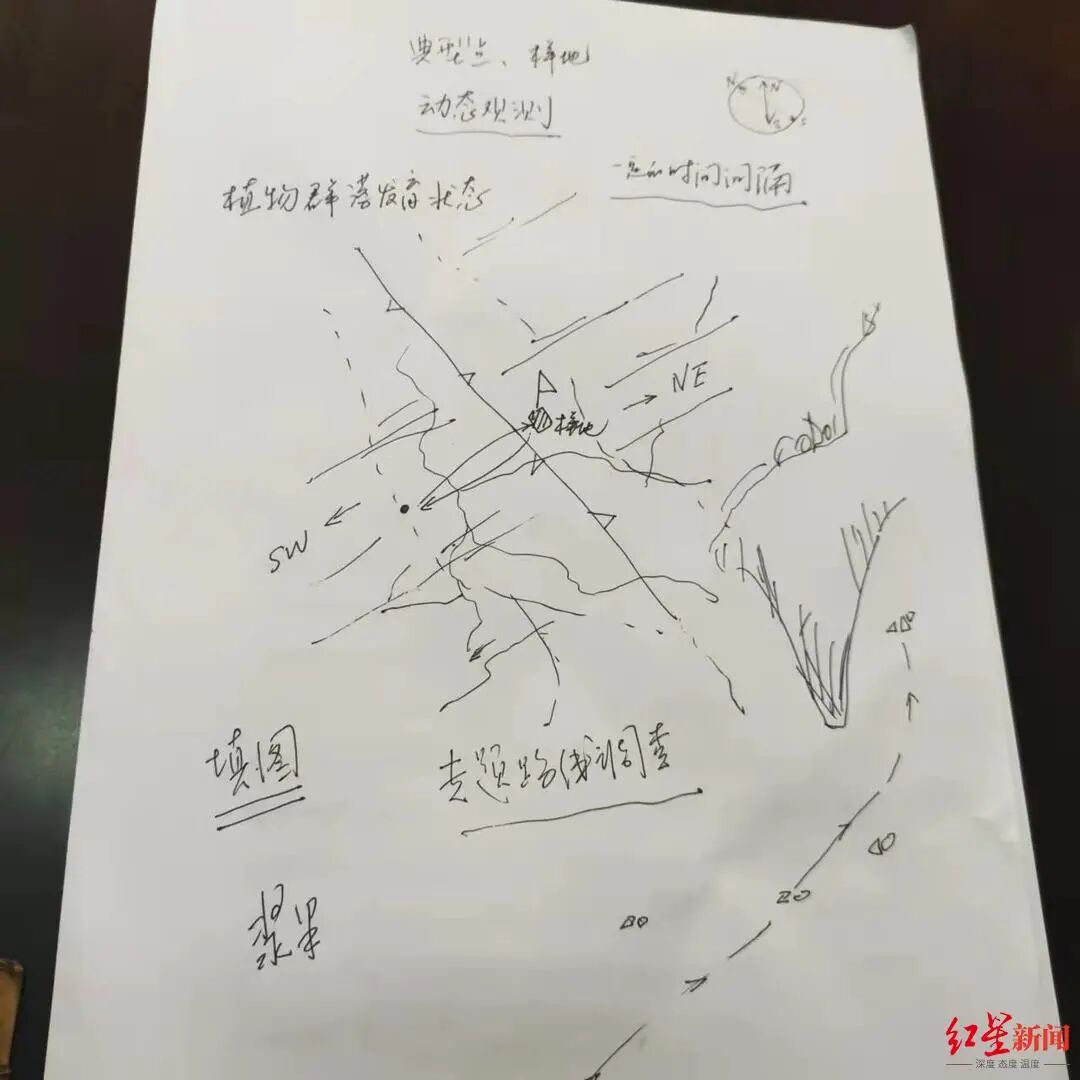 典型点、样地
动态观测
N N
S S
植物群落发育状态
一定的时间间隔
NE
样地
SW
填图
专题路线调查
浆果
红星新闻
深度 态度 温度